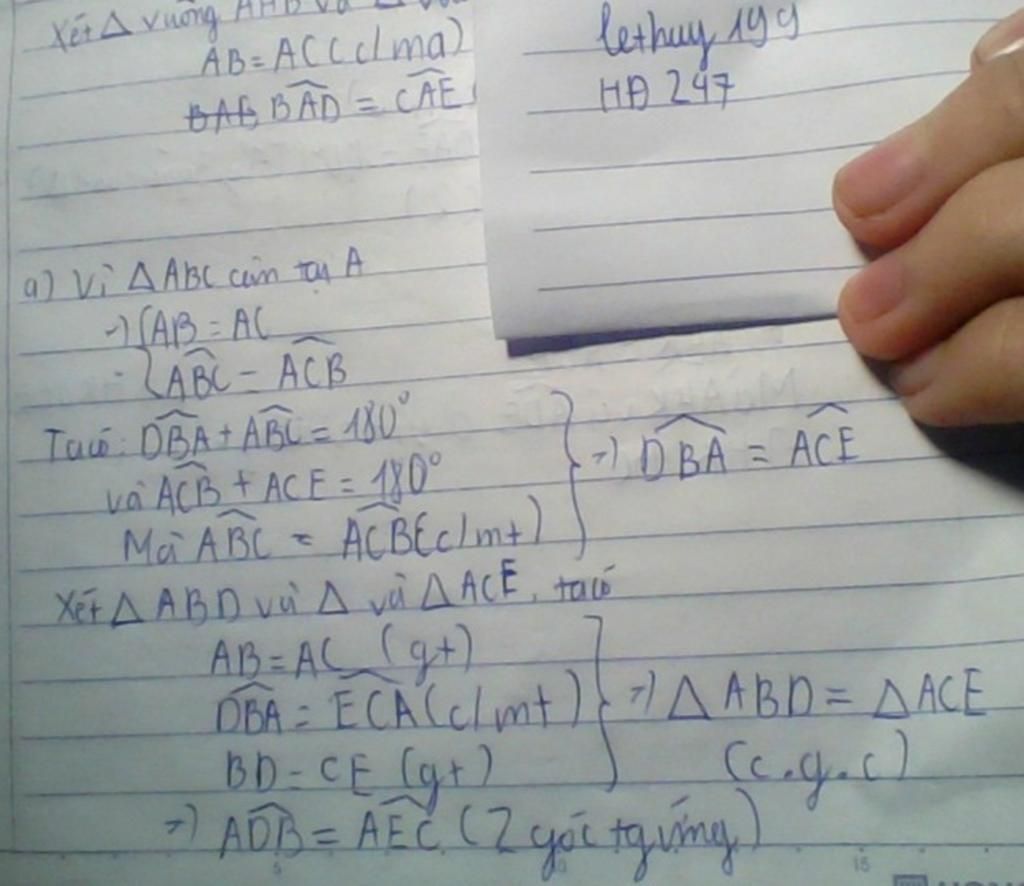 Xét Δ vuông AHB và Δ
AB = AC (c/ma)
BAE BAD = CAE
lethuy 199
HĐ 247
a) Vì Δ ABC cân tại A
=) { AB = AC
ABC = ACB
Ta có: DBA + ABC = 180°
và ACB + ACE = 180°
Mà ABC = ACB (c/mt)
=) DBA = ACE
Xét Δ ABD và Δ và Δ ACE, ta có
AB = AC (gt)
DBA = ECA (c/mt)
BD = CE (gt)
=) Δ ABD = Δ ACE
(c.g.c)
=) ADB = AEC (2 góc tg ứng)
5
15